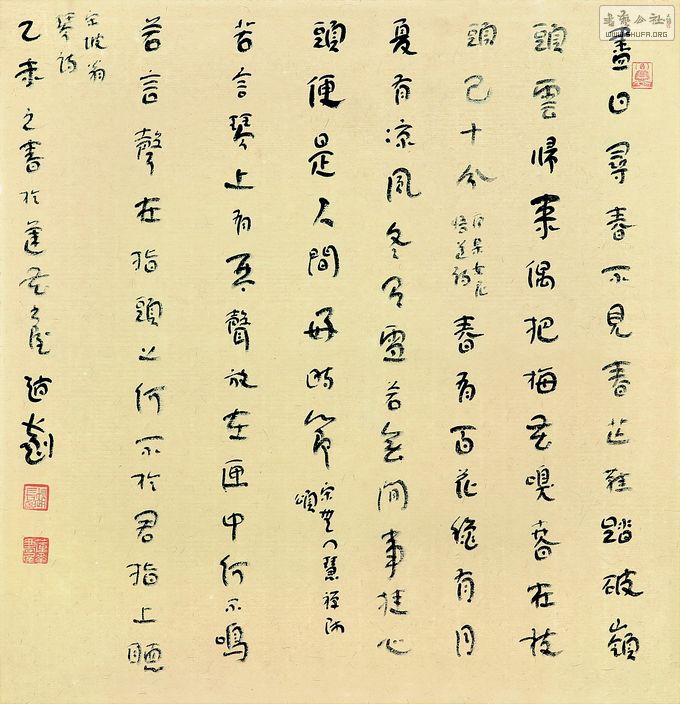 書法公社
WWW.SHUFA.ORG
盡日尋春不見春芒鞋踏破嶺
頭雲歸來偶把梅花嗅春在枝
頭已十分
某女尼
悟道詩
春有百花秋有月
夏有凉風冬有雪若無閒事挂心
頭便是人間好時節
宋無門慧禪師
頌
若言琴上有琴聲放在匣中何不鳴
若言聲在指頭上何不於君指上聽
宋坡翁
琴詩
乙未之書於蓮花書屋